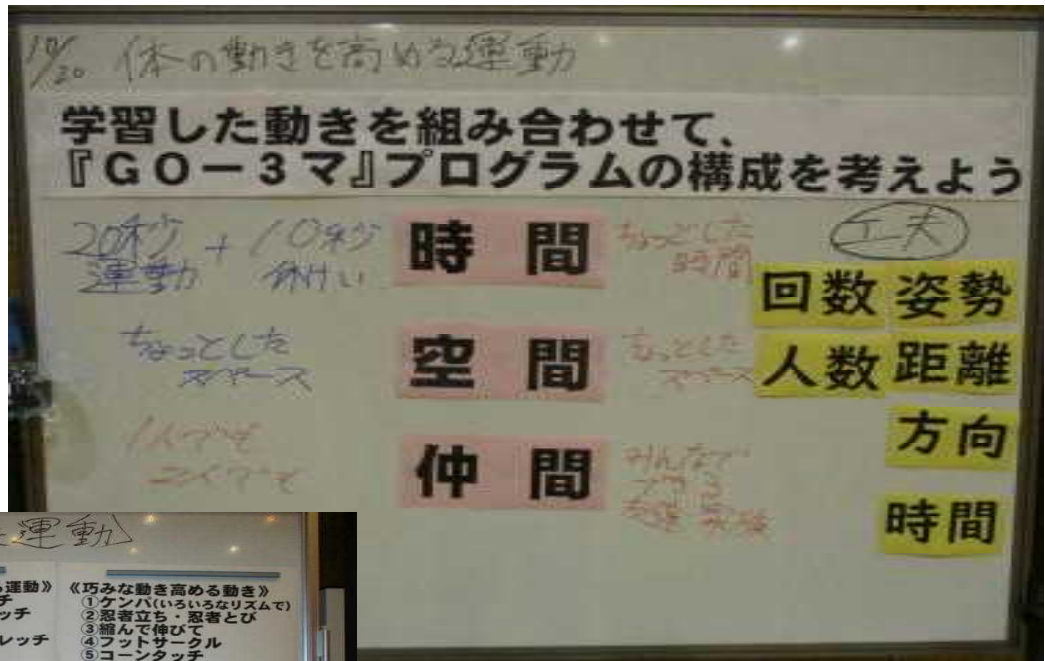 10/20 体の動きを高める運動
学習した動きを組み合わせて、
『GO－3マ』プログラムの構成を考えよう
20秒 + 10秒
運動
時間
ちょっとした
時間
工夫
回数 姿勢
ちょっとした
スペース
空間
ちょっとした
スペース
人数 距離
1人でも
2人でも
仲間
みんなで
方向
時間
運動
運動》
チ
ッチ
レッチ
《巧みな動き高める動き》
①ケンパ(いろいろなリズムで)
②忍者立ち・忍者とび
③縮んで伸びて
④フットサークル
⑤コーンタッチ